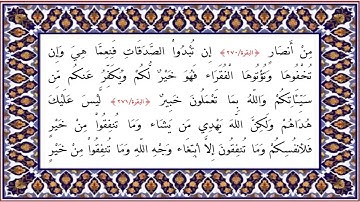 مِنْ أَنصَارٍ ﴿البقرة/٢٧٠﴾ إِن تُبْدُواْ الصَّدَقَاتِ فَنِعِمَّا هِيَ وَإِن
تُخْفُوهَا وَتُؤْتُوهَا الْفُقَرَاء فَهُوَ خَيْرٌ لَّكُمْ وَيُكَفِّرُ عَنكُم مِّن
سَيِّئَاتِكُمْ وَاللّهُ بِمَا تَعْمَلُونَ خَبِيرٌ ﴿البقرة/٢٧١﴾ لَّيْسَ عَلَيْكَ
هُدَاهُمْ وَلَكِنَّ اللّهَ يَهْدِي مَن يَشَاء وَمَا تُنفِقُواْ مِنْ خَيْرٍ
فَلأنفُسِكُمْ وَمَا تُنفِقُونَ إِلاَّ ابْتِغَاء وَجْهِ اللّهِ وَمَا تُنفِقُواْ مِنْ خَيْرٍ